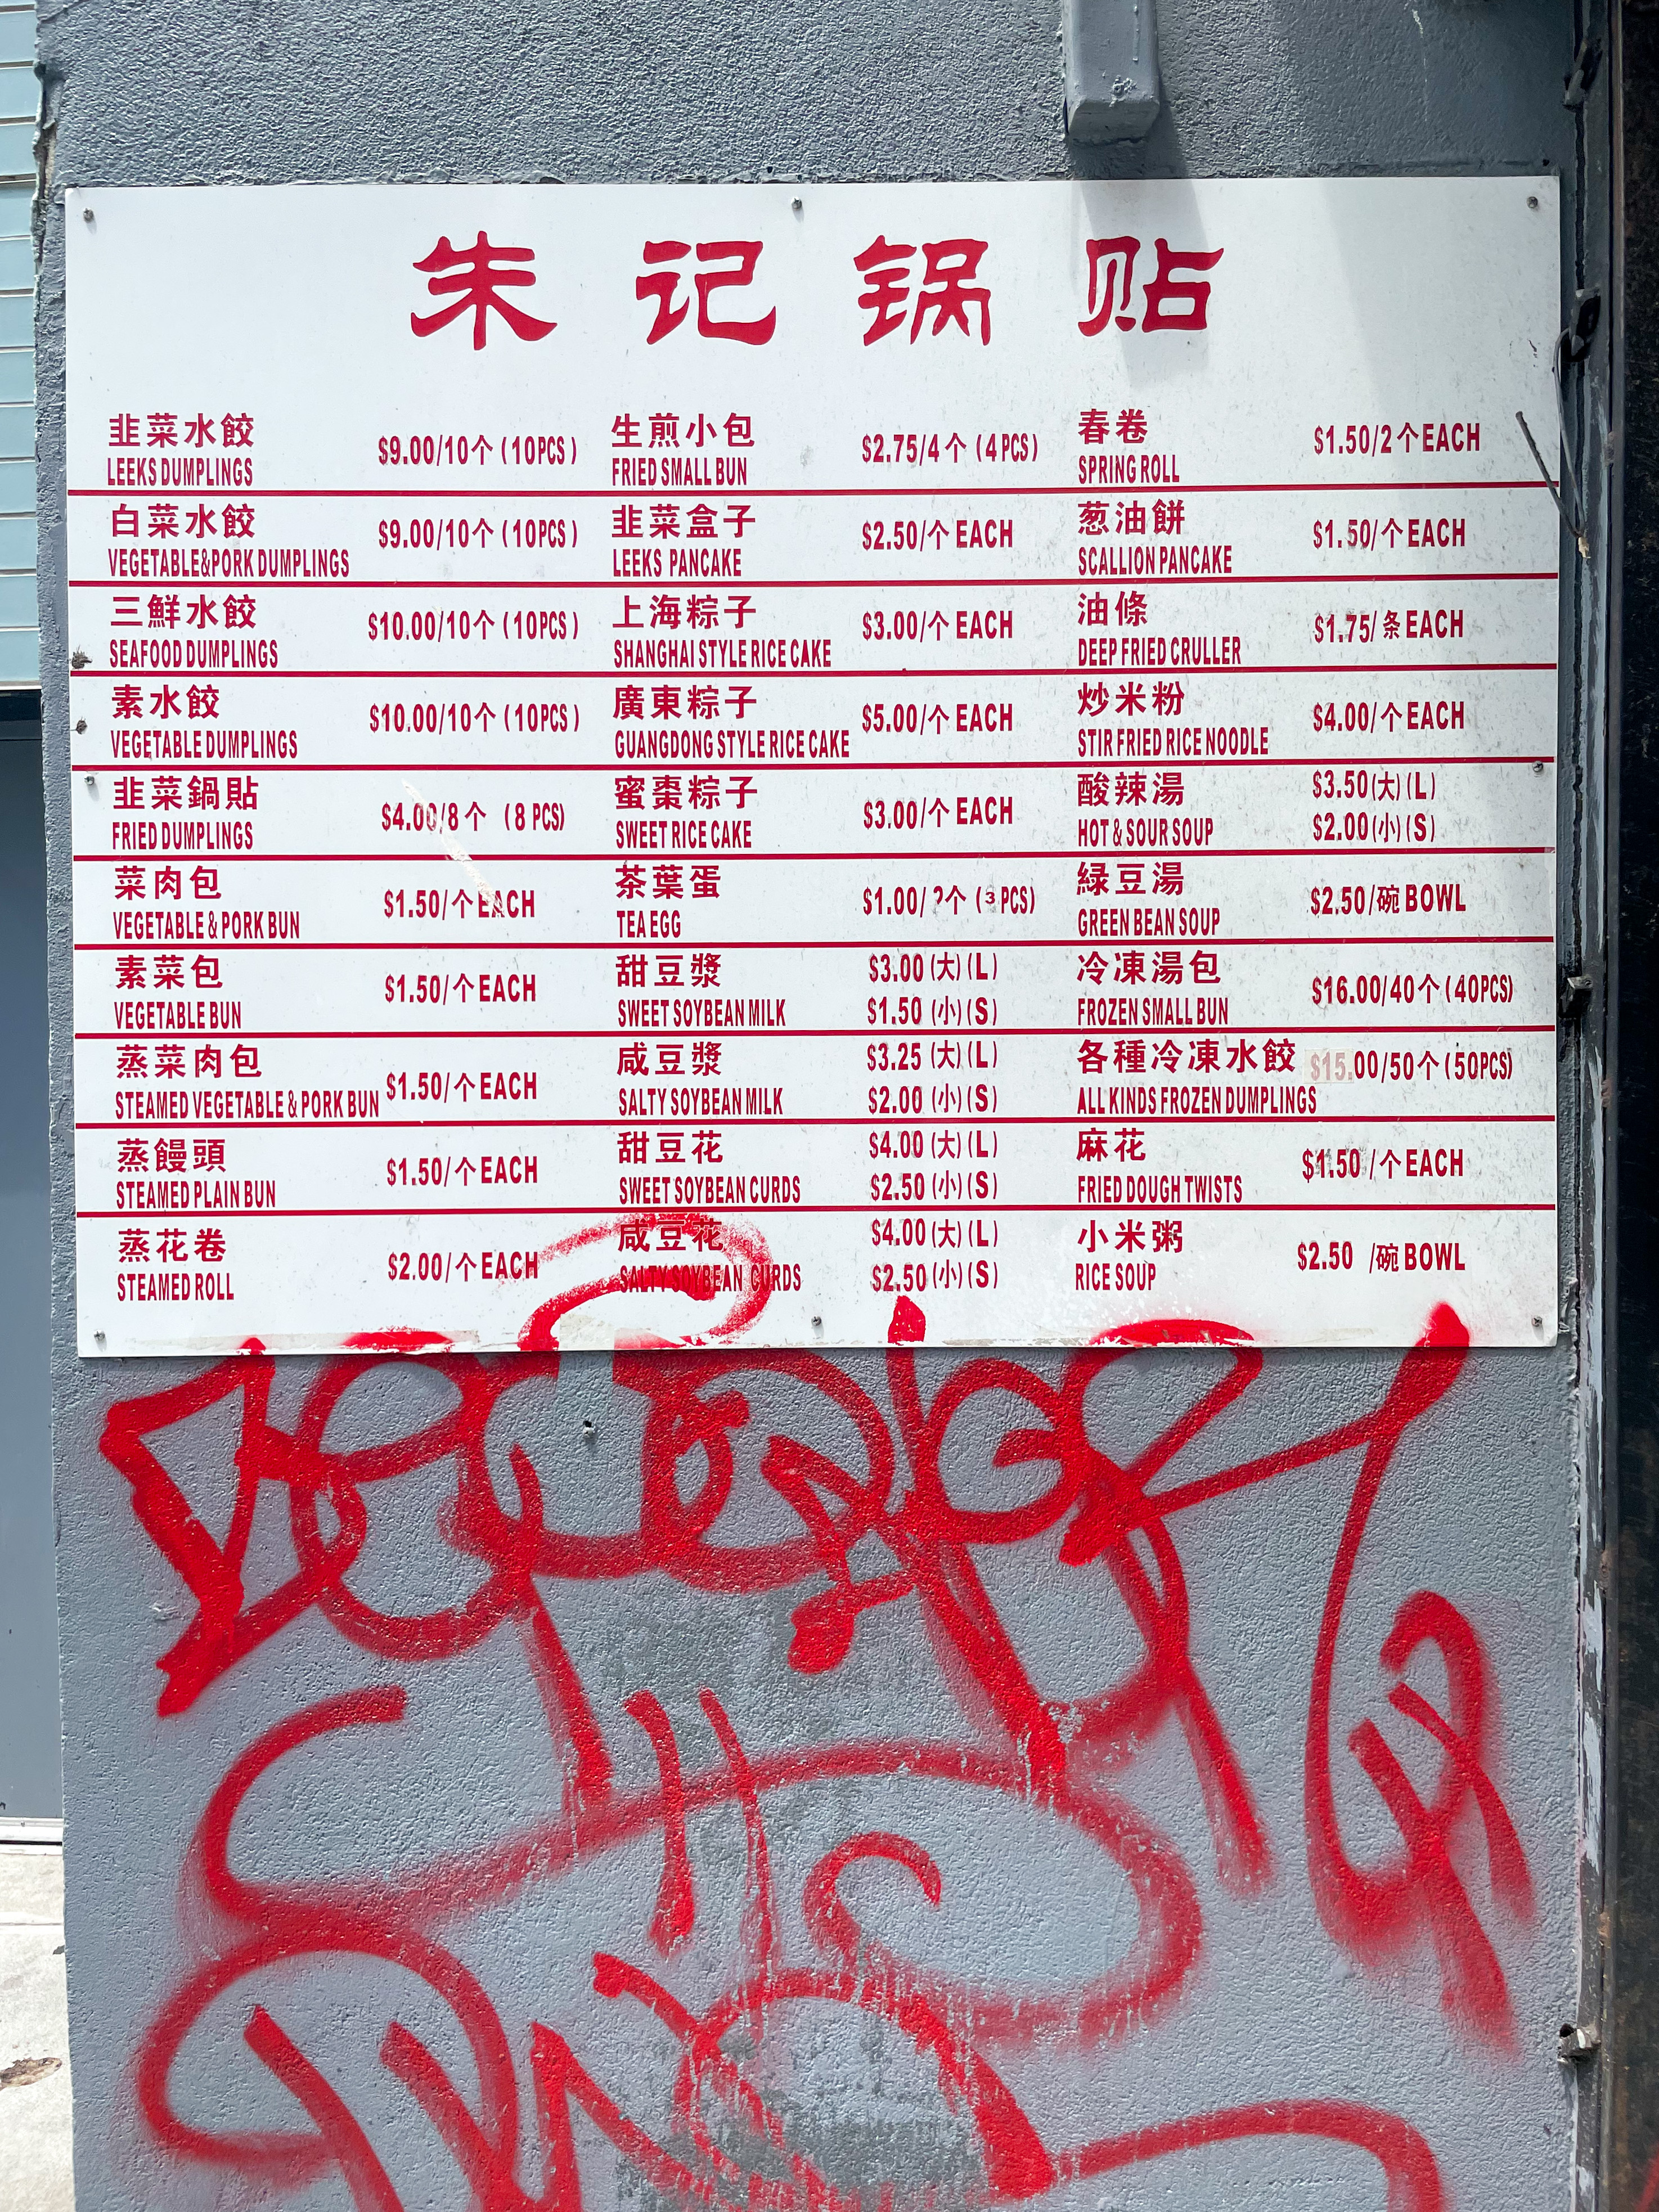 朱记锅贴
韭菜水餃
LEEKS DUMPLINGS
$9.00/10个 (10PCS)
白菜水餃
VEGETABLE&PORK DUMPLINGS
$9.00/10个 (10PCS)
三鮮水餃
SEAFOOD DUMPLINGS
$10.00/10个 (10PCS)
素水餃
VEGETABLE DUMPLINGS
$10.00/10个 (10PCS)
韭菜鍋貼
FRIED DUMPLINGS
$4.00/8个 (8 PCS)
菜肉包
VEGETABLE & PORK BUN
$1.50/个 EACH
素菜包
VEGETABLE BUN
$1.50/个 EACH
蒸菜肉包
STEAMED VEGETABLE & PORK BUN
$1.50/个 EACH
蒸饅頭
STEAMED PLAIN BUN
$1.50/个 EACH
蒸花卷
STEAMED ROLL
$2.00/个 EACH
生煎小包
FRIED SMALL BUN
$2.75/4个 (4 PCS)
韭菜盒子
LEEKS PANCAKE
$2.50/个 EACH
上海粽子
SHANGHAI STYLE RICE CAKE
$3.00/个 EACH
廣東粽子
GUANGDONG STYLE RICE CAKE
$5.00/个 EACH
蜜棗粽子
SWEET RICE CAKE
$3.00/个 EACH
茶葉蛋
TEA EGG
$1.00/ 个 (3 PCS)
甜豆漿
SWEET SOYBEAN MILK
$3.00 (大) (L)
$1.50 (小) (S)
咸豆漿
SALTY SOYBEAN MILK
$3.25 (大) (L)
$2.00 (小) (S)
甜豆花
SWEET SOYBEAN CURDS
$4.00 (大) (L)
$2.50 (小) (S)
咸豆花
SALTY SOYBEAN CURDS
$4.00 (大) (L)
$2.50 (小) (S)
春卷
SPRING ROLL
$1.50/2个 EACH
葱油餅
SCALLION PANCAKE
$1.50/个 EACH
油條
DEEP FRIED CRULLER
$1.75/条 EACH
炒米粉
STIR FRIED RICE NOODLE
$4.00/个 EACH
酸辣湯
HOT & SOUR SOUP
$3.50 (大) (L)
$2.00 (小) (S)
緑豆湯
GREEN BEAN SOUP
$2.50/碗 BOWL
冷凍湯包
FROZEN SMALL BUN
$16.00/40个 (40PCS)
各種冷凍水餃
ALL KINDS FROZEN DUMPLINGS
$15.00/50个 (50PCS)
麻花
FRIED DOUGH TWISTS
$1.50 /个 EACH
小米粥
RICE SOUP
$2.50 /碗 BOWL